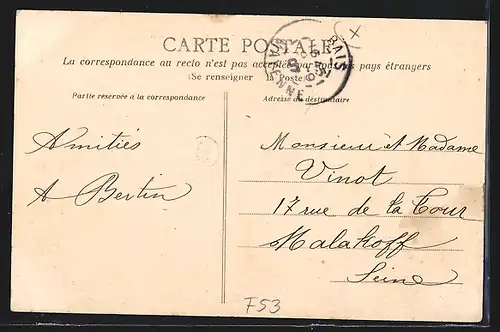 CARTE POSTALE
La correspondance au recto n'est pas acceptée par tous les pays étrangers
(Se renseigner à la Poste)
BAIS
MAYENNE
Partie réservée à la correspondance
Adresse du destinataire
Amitiés
A Bertin
Monsieur et Madame
Vinot
17 rue de la Tour
Malakoff
Seine
F53